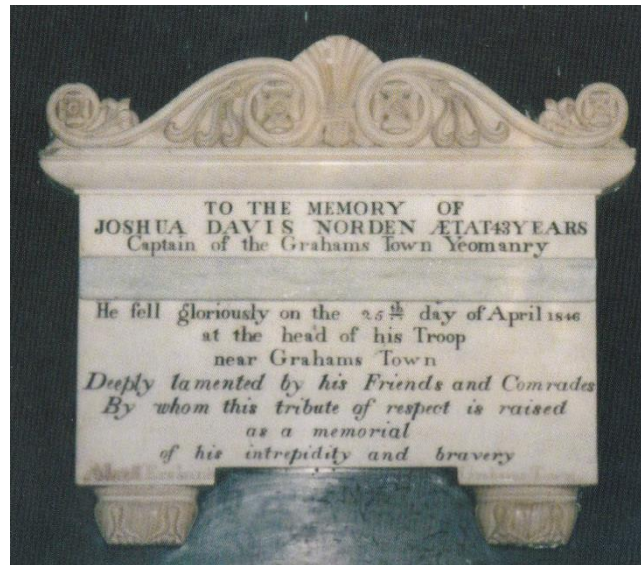 TO THE MEMORY OF
JOSHUA DAVIS NORDEN ÆTAT 43 YEARS
Captain of the Grahams Town Yeomanry
He fell gloriously on the 25th day of April 1846
at the head of his Troop
near Grahams Town
Deeply lamented by his Friends and Comrades
By whom this tribute of respect is raised
as a memorial
of his intrepidity and bravery